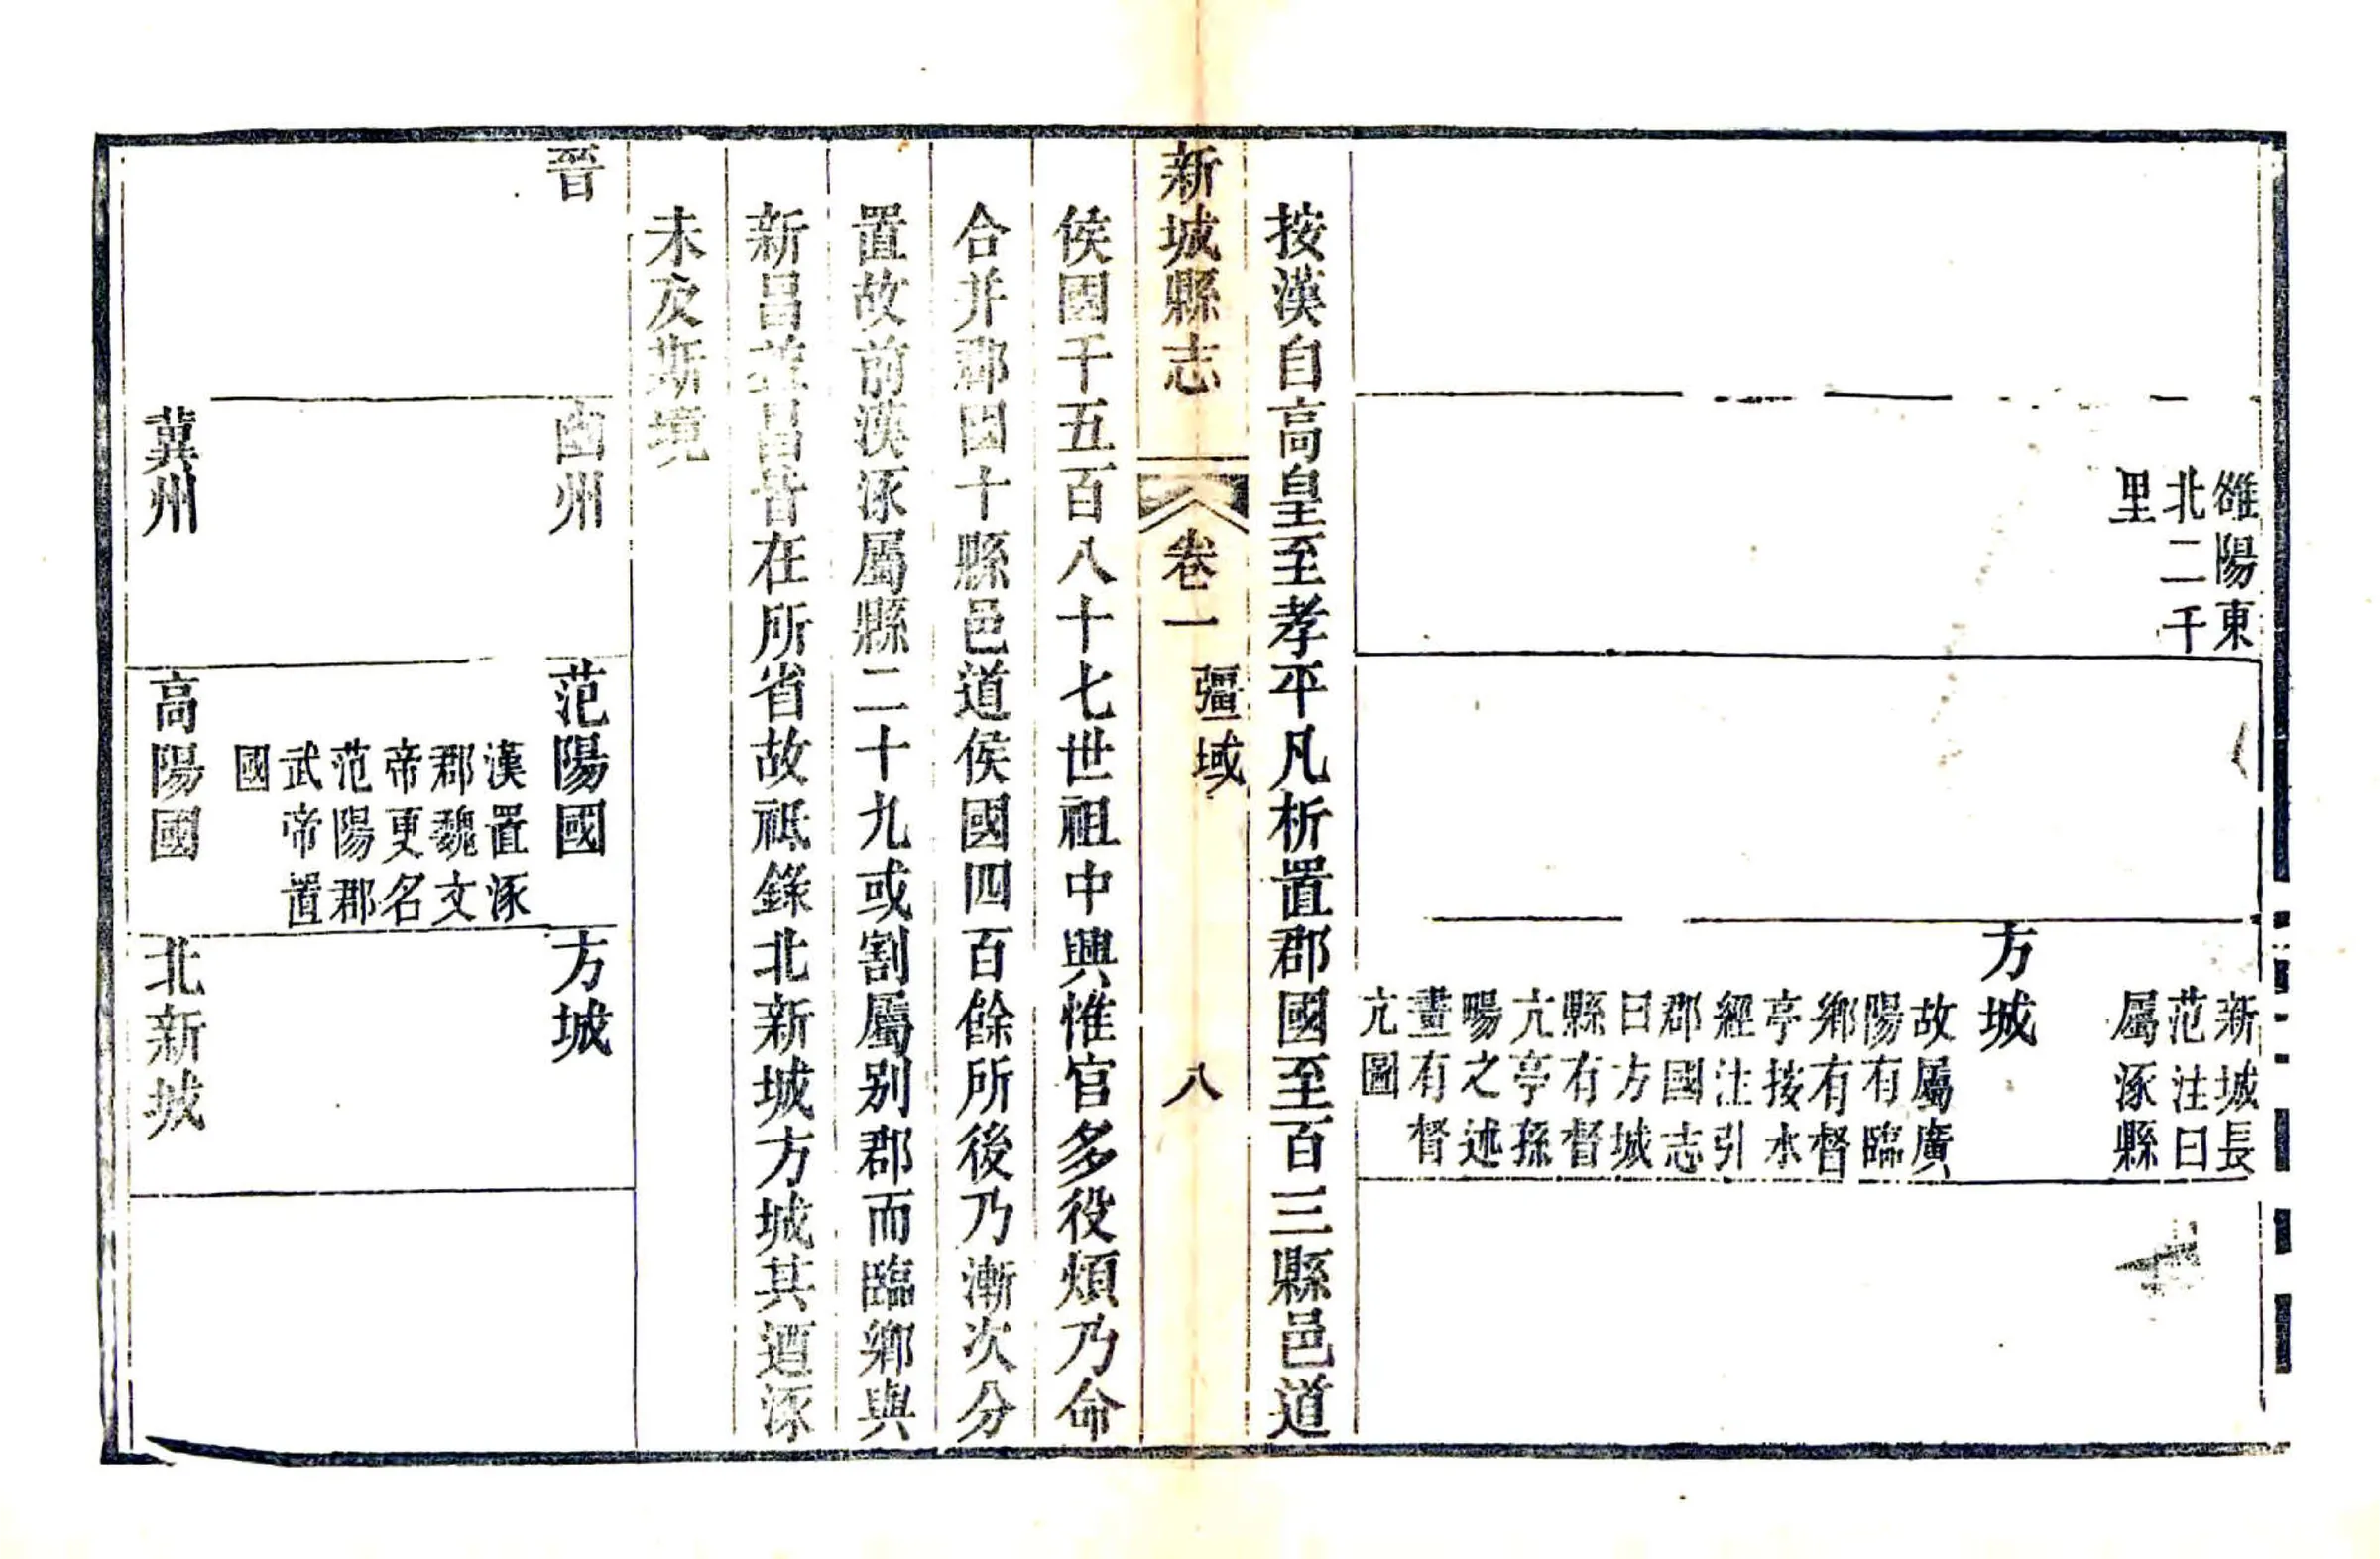 雒陽東
北二千
里
新城長
范注曰
屬涿縣
方城
故屬廣
陽有臨
鄉有督
亭按水
經注引
郡國志
曰方城
縣有督
亢亭孫
暢之述
畫有督
亢圖
按漢自高皇至孝平凡析置郡國至百三縣邑道
新城縣志
卷一
疆域
八
侯國千五百八十七世祖中興惟官多役煩乃命
合并郡國十縣邑道侯國四百餘所後乃漸次分
置故前漢涿屬縣二十九或割屬別郡而臨鄉與
新昌並昌皆在所省故祗錄北新城方城其遒涿
未及斯境
晉
幽州
范陽國
漢置涿
郡魏文
帝更名
范陽郡
武帝置
國
方城
冀州
高陽國
北新城